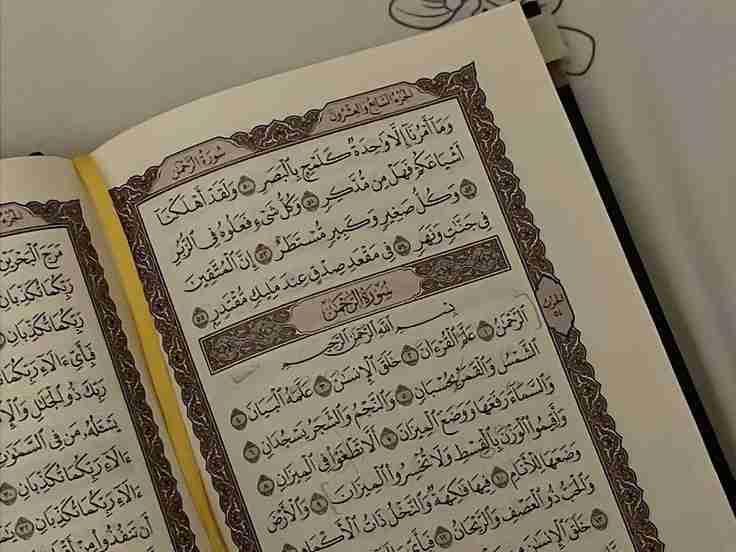 الجزء السابع والعشرون
سورة الرحمن
وَمَآ أَمْرُنَآ إِلَّا وَٰحِدَةٌ كَلَمْحٍۭ بِٱلْبَصَرِ ۝ وَلَقَدْ أَهْلَكْنَآ
أَشْيَاعَكُمْ فَهَلْ مِن مُّدَّكِرٍ ۝ وَكُلُّ شَىْءٍ فَعَلُوهُ فِى ٱلزُّبُرِ
۝ وَكُلُّ صَغِيرٍ وَكَبِيرٍ مُّسْتَطَرٌ ۝ إِنَّ ٱلْمُتَّقِينَ
فِى جَنَّٰتٍ وَنَهَرٍ ۝ فِى مَقْعَدِ صِدْقٍ عِندَ مَلِيكٍ مُّقْتَدِرٍۭ ۝
سُورَةُ الرَّحْمَٰن
بِسْمِ ٱللَّهِ ٱلرَّحْمَٰنِ ٱلرَّحِيمِ
ٱلرَّحْمَٰنُ ۝ عَلَّمَ ٱلْقُرْءَانَ ۝ خَلَقَ ٱلْإِنسَٰنَ ۝ عَلَّمَهُ ٱلْبَيَانَ ۝
ٱلشَّمْسُ وَٱلْقَمَرُ بِحُسْبَانٍ ۝ وَٱلنَّجْمُ وَٱلشَّجَرُ يَسْجُدَانِ ۝
وَٱلسَّمَآءَ رَفَعَهَا وَوَضَعَ ٱلْمِيزَانَ ۝ أَلَّا تَطْغَوْا۟ فِى ٱلْمِيزَانِ ۝
وَأَقِيمُوا۟ ٱلْوَزْنَ بِٱلْقِسْطِ وَلَا تُخْسِرُوا۟ ٱلْمِيزَانَ ۝ وَٱلْأَرْضَ
وَضَعَهَا لِلْأَنَامِ ۝ فِيهَا فَٰكِهَةٌ وَٱلنَّخْلُ ذَاتُ ٱلْأَكْمَامِ
وَٱلْحَبُّ ذُو ٱلْعَصْفِ وَٱلرَّيْحَانُ ۝ فَبِأَىِّ
۝ خَلَقَ ٱلْإِنسَٰنَ
مَرَجَ ٱلْبَحْرَيْنِ
رَبِّكُمَا تُكَذِّبَانِ
رَبِّكُمَا تُكَذِّبَانِ
فَبِأَىِّ ءَالَآءِ رَبِّكُمَا تُكَذِّبَانِ
رَبِّكَ ذُو ٱلْجَلَٰلِ وَٱلْإِ
يَسْـَٔلُهُۥ مَن فِى ٱلسَّمَٰوَٰ
ءَالَآءِ رَبِّكُمَا تُكَذِّبَانِ
ءَالَآءِ رَبِّكُمَا تُكَذِّبَانِ
أَن تَنفُذُوا۟ مِنْ